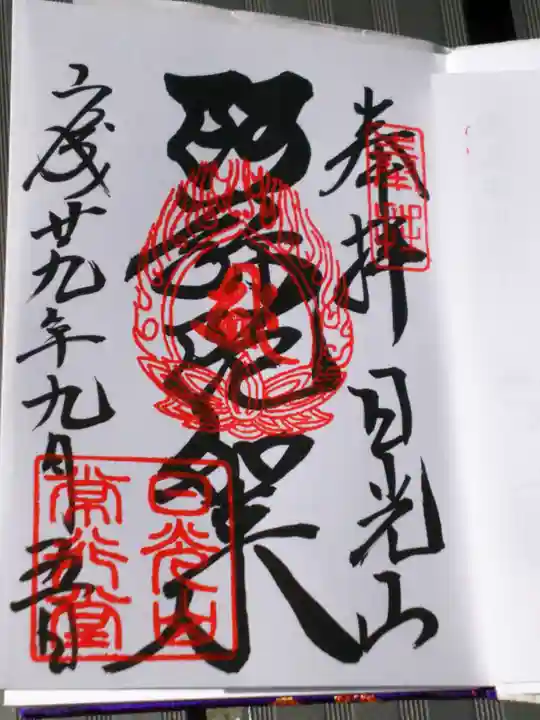 奉拝 日光山
阿弥陀如来
平成廿九年九月五日
日光山
常行堂